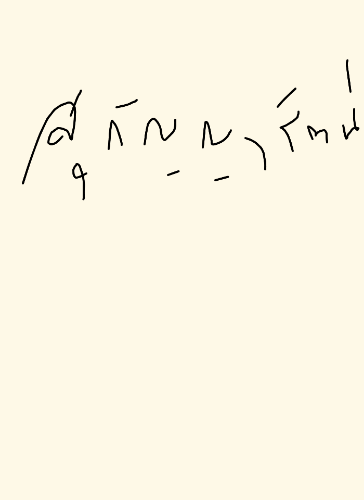 สุกัญญารัตน่